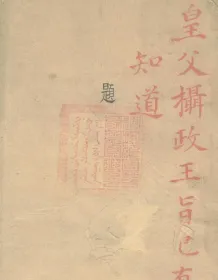 皇父攝政王旨已有
知道
題